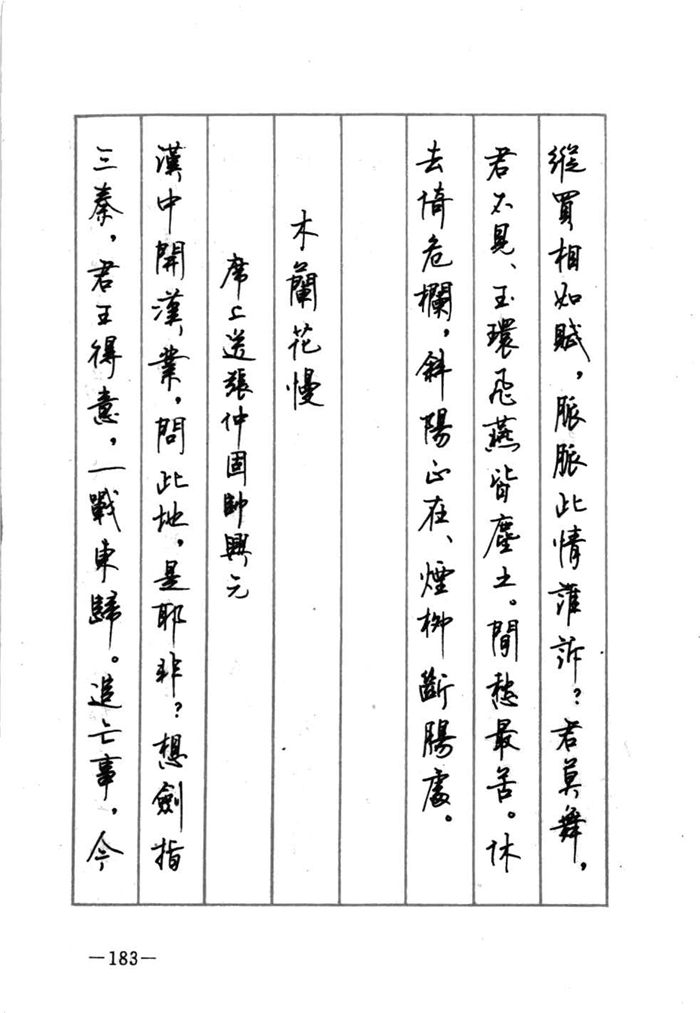 縱買相如賦，脈脈此情誰訴？君莫舞，
君不見、玉環飛燕皆塵土。閒愁最苦。休
去倚危欄，斜陽正在、煙柳斷腸處。
木蘭花慢
席上送張仲固帥興元
漢中開漢業，問此地，是耶非？想劍指
三秦，君王得意，一戰東歸。追亡事，今
—183—